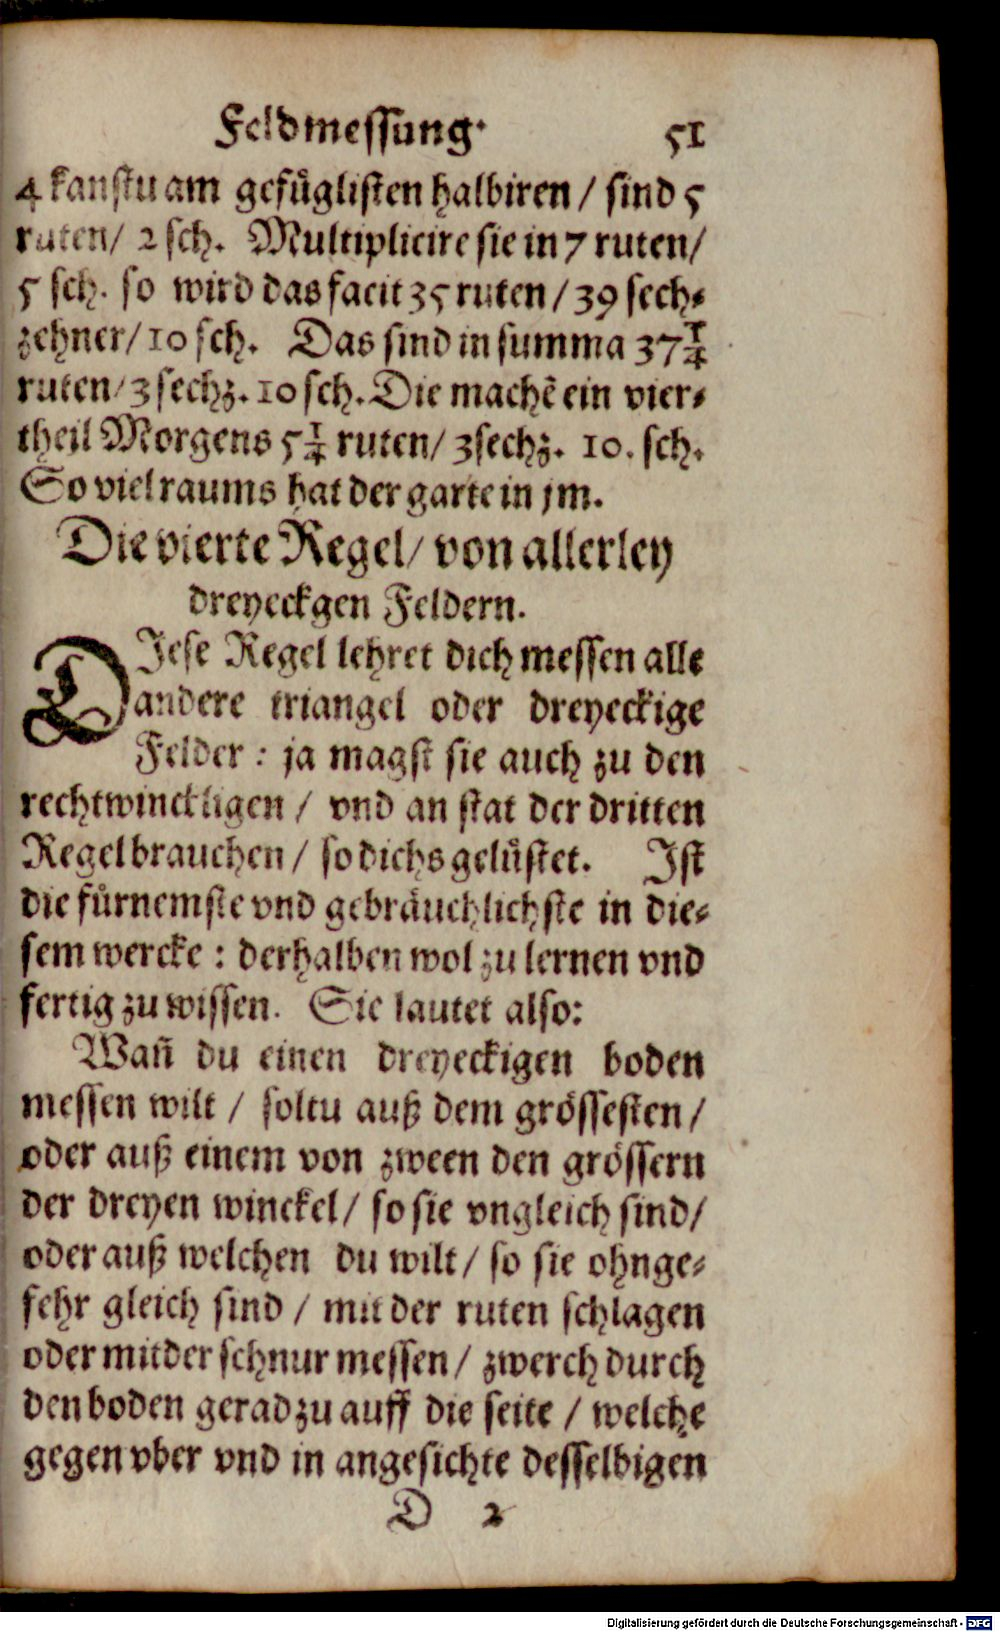 Feldmessung. 51
4 kanstu am gefůglisten halbiren / sind 5
ruten / 2 sch. Multiplicire sie in 7 ruten /
5 sch. so wird das facit 35 ruten / 39 sech-
zehner / 10 sch. Das sind in summa 37 1/4
ruten / 3 sechz. 10 sch. Die machẽ ein vier-
theil Morgens 5 1/4 ruten / 3 sechz. 10. sch.
So viel raums hat der garte in jm.
Die vierte Regel / von allerley
dreyeckgen Feldern.
DIese Regel lehret dich messen alle
andere triangel oder dreyeckige
Felder : ja magst sie auch zu den
rechtwinckligen / vnd an stat der dritten
Regel brauchen / so dichs gelůstet. Ist
die fůrnemste vnd gebräuchlichste in die-
sem wercke : derhalben wol zu lernen vnd
fertig zu wissen. Sie lautet also:
Wañ du einen dreyeckigen boden
messen wilt / soltu auß dem grössesten /
oder auß einem von zween den grössern
der dreyen winckel / so sie vngleich sind /
oder auß welchen du wilt / so sie ohnge-
fehr gleich sind / mit der ruten schlagen
oder mit der schnur messen / zwerch durch
den boden gerad zu auff die seite / welche
gegen vber vnd in angesichte desselbigen
D 2
Digitalisierung gefördert durch die Deutsche Forschungsgemeinschaft - DFG